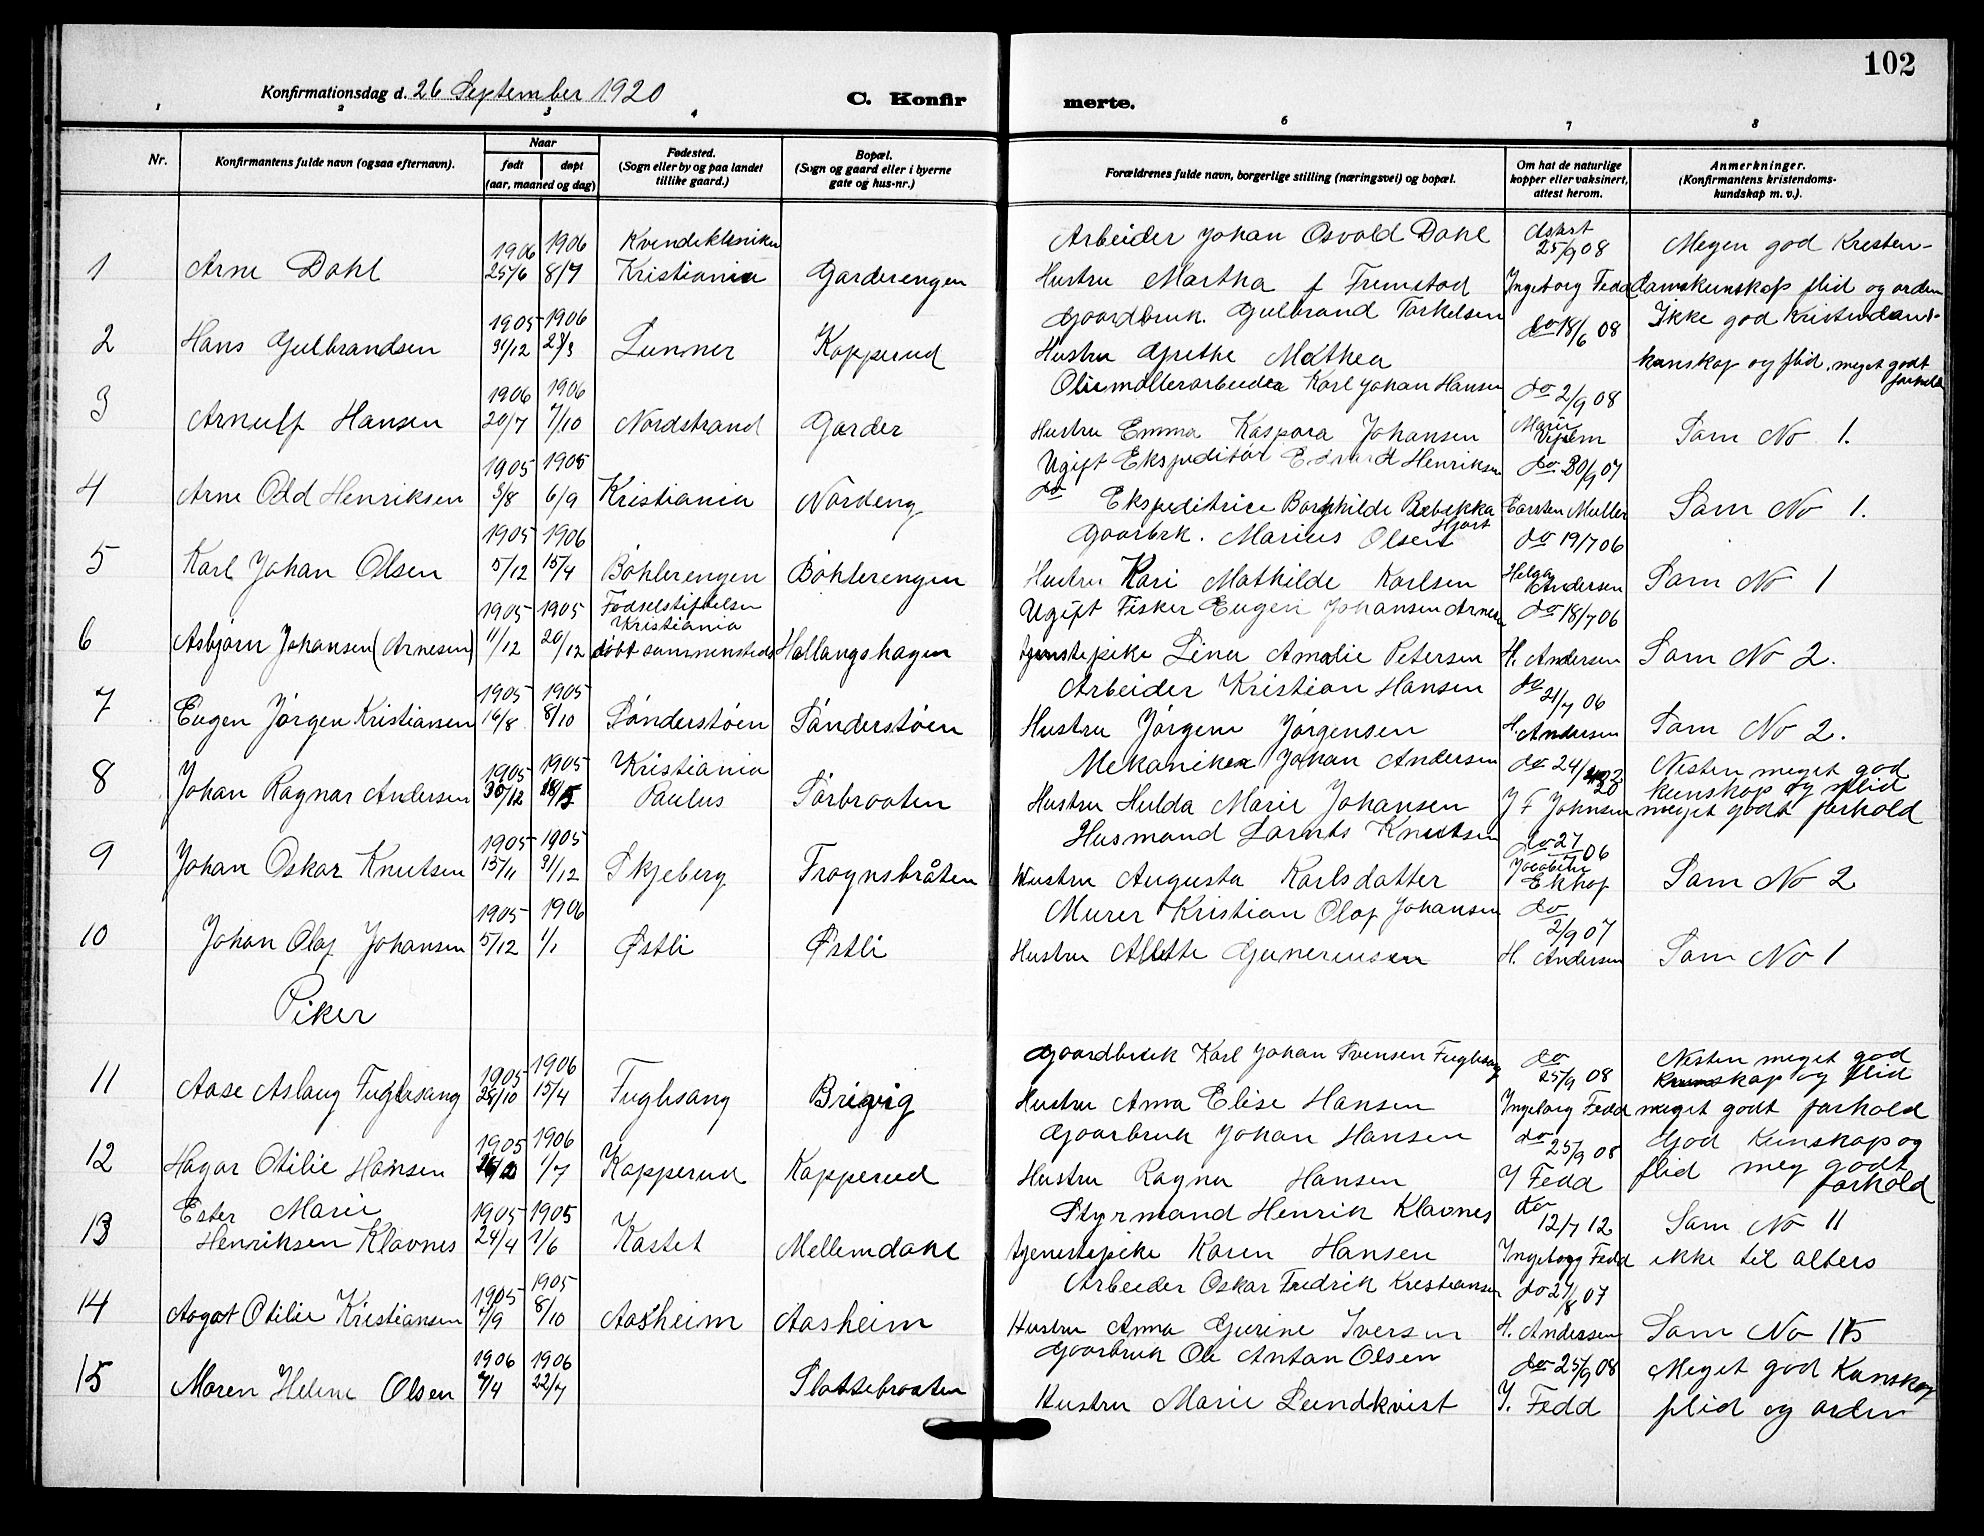 102
Konfirmationsdag d. 26 September 1920
C. Konfir
merte.
1 2 3 4 6 7 8
Nr.
Konfirmantens fulde navn (ogsaa efternavn).
Naar
født døpt
(aar, maaned og dag)
Fødested.
(Sogn eller by og paa landet
tillike gaard.)
Bopæl.
(Sogn og gaard eller i byerne
gate og hus-nr.)
Forældrenes fulde navn, borgerlige stilling (næringsvei) og bopæl.
Om hat de naturlige
kopper eller vaksinert,
attest herom.
Anmerkninger.
(Konfirmantens kristendoms-
kundskap m. v.).
1906 1906 Kvindekliniken Arbeider Johan Osvald Dahl Attest 25/9 08 Megen god Kresten-
1 Arne Dahl 25/6 8/7 Kristiania Garderengen Hustru Martha f Fremstad Ingeborg Fedd damskunskap flid og orden
1905 1906 Gaardbruk. Gulbrand Torkelsen do 18/6 08 Ikke god Kristendans-
2 Hans Gulbrandsen 31/12 23/3 Lunner Kopperud Hustru Grethe Mathea kunskap og flid, meget godt forhold
1906 1906 Oliemøllerarbeider Karl Johan Hansen do 2/9 08
3 Arnulf Hansen 20/7 7/10 Nordstrand Garder Hustru Emma Kaspara Johansen Marie Som No 1.
1905 1905 Ugift Ekspeditør Edvard Henriksen do 30/9 07
4 Arne Odd Henriksen 3/8 6/9 Kristiania Nordeng do Ekspeditrice Borghilde Rebekka Hjort Carsten Muller Som No 1.
1905 1906 Gaarbrk. Marius Olsen do 19/7 06
5 Karl Johan Olsen 5/12 15/4 Böhlerengen Böhlerengen Hustru Kari Mathilde Karlsen Helga Andersen Som No 1
1905 1905 Fødselstiftelsen Kristiania Ugift Fisker Eugen Johansen Arnesen do 18/7 06
6 Asbjørn Johansen (Arnesen) 11/12 20/12 döbt sammensteds Hallangshagen tjenstepike Lina Amalie Petersen H. Andersen Som No 2.
1905 1905 Arbeider Kristian Hansen do 21/7 06
7 Eugen Jørgen Kristiansen 16/8 8/10 Sönderstöen Sönderstöen Hustru Jörgine Jörgensen H. Andersen Som No 2.
1905 1905 Kristiania Mekaniker Johan Andersen do 24/ Nesten meget god kunskap og flid
8 Johan Ragnar Andersen 30/12 Paulus Sörbraaten Hustru Hulda Marie Johansen J F Johnsen meget godt forhold
1905 1905 Husmand Lornts Knutsen do 27 06
9 Johan Oskar Knutsen 15/11 31/12 Skjeberg Frognsbråten Hustru Augusta Karlsdatter Som No 2
1905 1906 Murer Kristian Olaf Johansen do 2/9 07
10 Johan Olaf Johansen 5/12 1/1 Østli Østli Hustru Allette Guneriussen H. Andersen Som No 1
Piker
1905 1906 Gaardbruk Karl Johan Svensen Fuglesang do 25/9 08 Nesten meget god kunskap og flid
11 Aase Aslaug Fuglesang 28/10 15/4 Fuglesang Brevig Hustru Anna Elise Hansen Ingeborg Fedd meget godt forhold
1905 1906 Gaarbruk Johan Hansen do 25/9 08 God Kunskap og
12 Hagar Otilie Hansen 1/7 Kopperud Kopperud Hustru Ragna Hansen I Fedd flid meg godt forhold
Ester Marie 1905 1905 Styrmand Henrik Klavnes do 12/7 12 Som No 11
13 Henriksen Klavnes 24/4 1/6 Kastet Mellemdale tjenestepike Karen Hansen Ingeborg Fedd ikke til alters
1905 1905 Arbeider Oskar Fredrik Kristiansen do 27/8 07
14 Aagot Otilie Kristiansen 7/9 8/10 Aasheim Aasheim Hustru Anna Gurine Iversen H. Andersen Som No 15
1906 1906 Gaarbruk Ole Anton Olsen do 25/9 08 Meget god Kunskap
15 Maren Helene Olsen 4/4 22/7 Slottebraaten Hustru Marie Lundkvist I. Fedd flid og orden